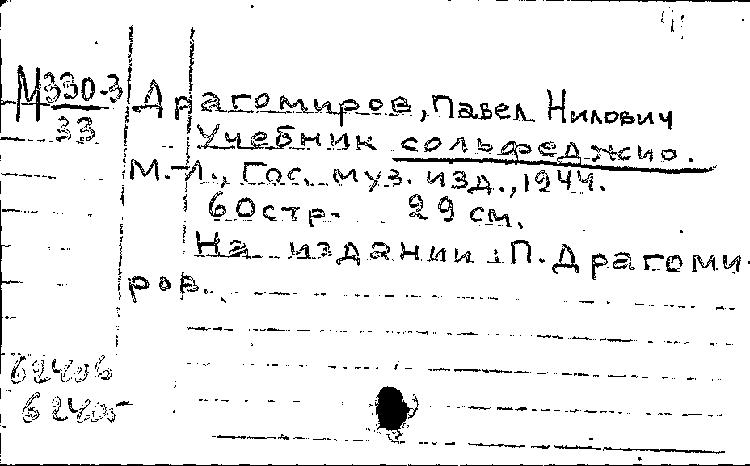 М330-3
33
Драгомиров, Павел Нилович
Учебник сольфеджио.
М.-Л., Гос. муз. изд., 1944.
60стр. 29 см.
На издании: П. Драгоми-
ров.
62406
62405